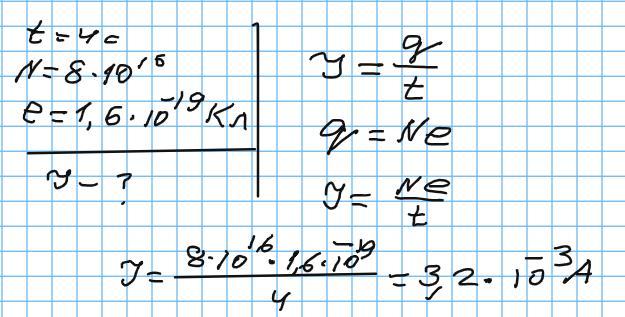 t = 4 c
N = 8 · 10^16
e = 1,6 · 10^-19 Кл
I - ?
I = q/t
q = Ne
I = Ne/t
I = 8·10^16 · 1,6·10^-19 / 4 = 3,2 · 10^-3 A